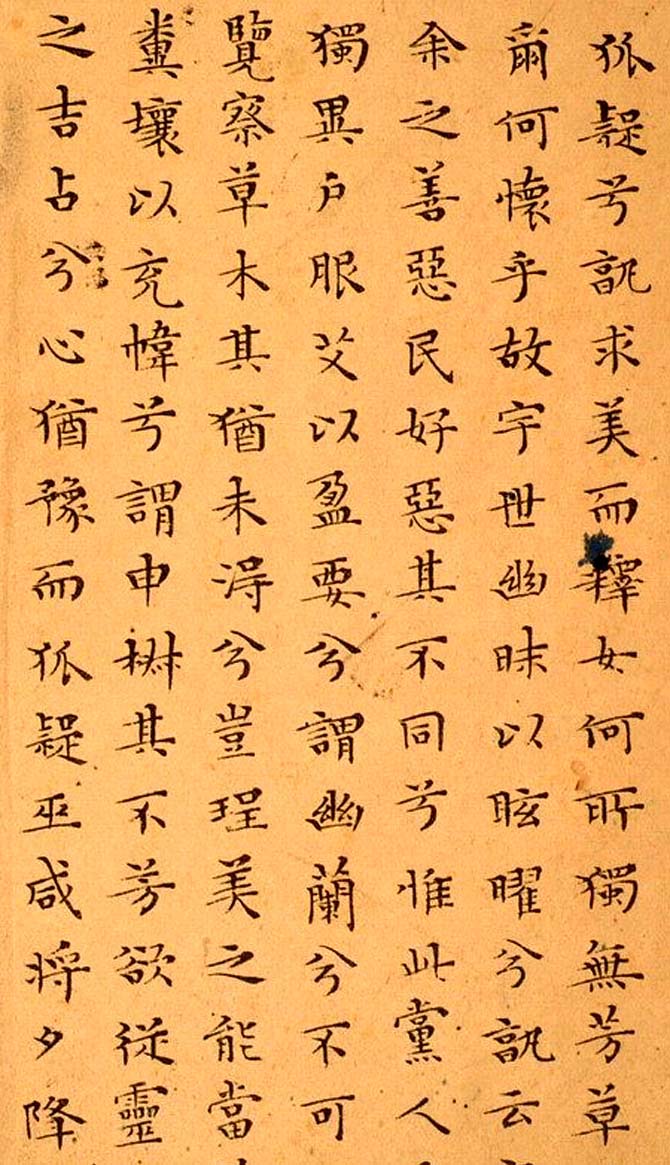 狐疑兮孰求美而釋女何所獨無芳草
爾何懷乎故宇世幽昧以眩曜兮孰云
余之善惡民好惡其不同兮惟此黨人
獨異戶服艾以盈要兮謂幽蘭兮不可
覽察草木其猶未得兮豈珵美之能當
糞壤以充幃兮謂申椒其不芳欲從靈
之吉占兮心猶豫而狐疑巫咸將夕降